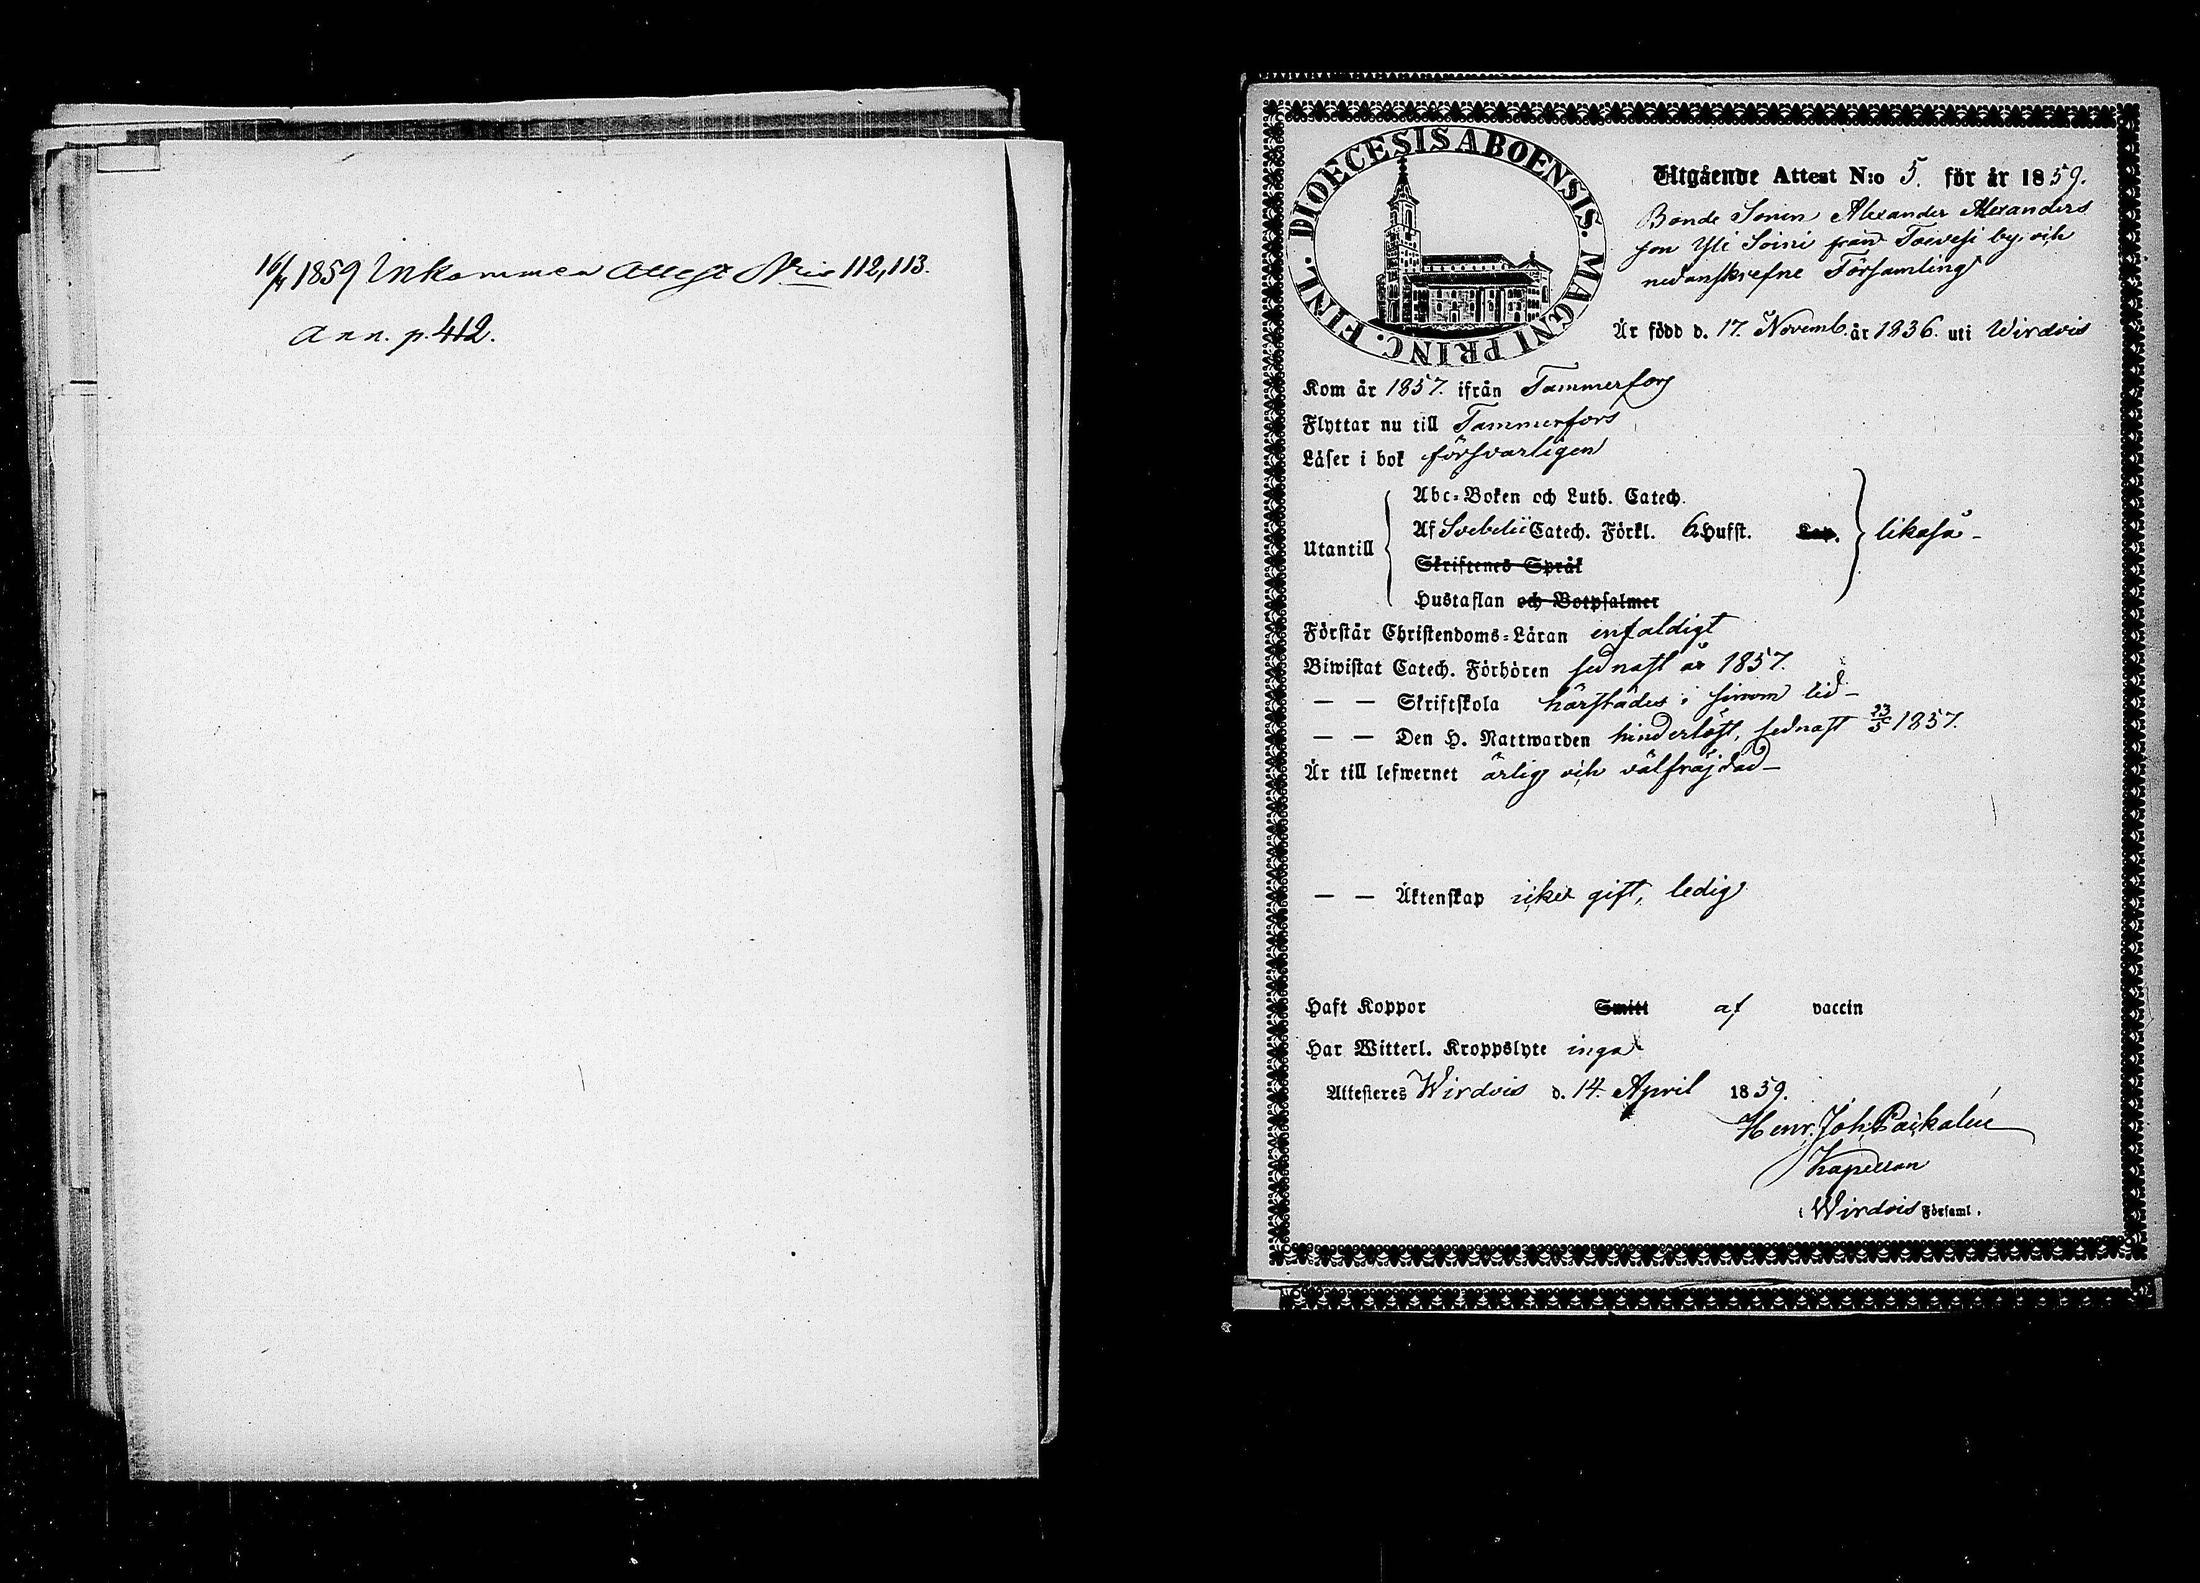 16/4 1859 Inkommen Attest N:ris 112, 113.
Ann. p. 412.
DIOECESIS ABOENSIS. MAGNI PRINC. FINL.
Utgående Attest N:o 5. för år 1859.
Bonde Sonen Alexander Alexanders
son Yli Soini från Toevesi by, och
nedanskrefne Församling
Är född d. 17. Novemb. år 1836. uti Wirdois
Kom år 1857. ifrån Tammerfors
Flyttar nu till Tammerfors
Läser i bok försvarligen
Utantill
Abc-Boken och Luth. Catech.
Af Svebelii Catech. Förkl. 6 Hufst. Lap. likaså -
Skriftenes Språk
Hustaflan och Botpsalmer
Förstår Christendoms-Läran enfaldigt
Biwistat Catech. Förhören sednast år 1857.
— — Skriftskola härstädes i sinom tid -
— — Den H. Nattwarden hinderlöst, sednast 23/5 1857.
Är till lefwernet ärlig och välfräjdad -
— — Äktenskap icke gift, ledig
Haft Koppor Smitt af vaccin
Har Witterl. Kroppslyte inga
Attesteres Wirdois d. 14. April 1859.
Henr. Joh. Paikalén
Kapellan
i Wirdois Församl.